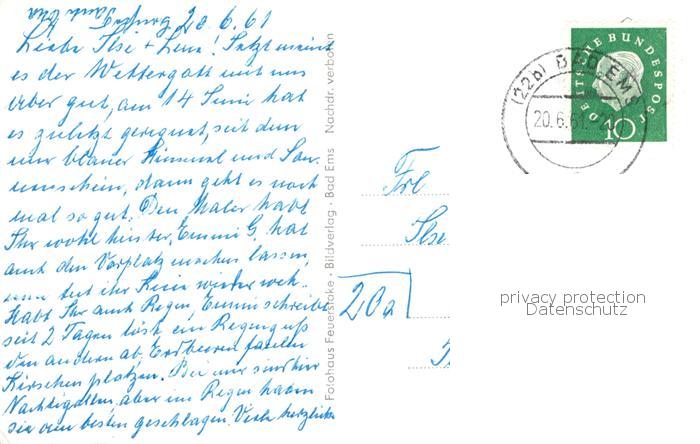 Tante Etta
20.6.61
Liebe Ilse + Lena! Jetzt meint
es der Wettergott mit uns
aber gut, am 14 Juni hat
es zuletzt geregnet, seit dem
nur blauer Himmel und Son-
nenschein, dann geht es noch
mal so gut. Den Maler habt
Ihr wohl hinter, Emmi G. hat
auch den Vorplatz machen lassen,
tut ihr Knie wieder weh.
Habt Ihr auch Regen, Emmi schreibt
seit 2 Tagen löst ein Regenguß
den andern ab, Erdbeeren faulen
Kirschen platzen. Bei mir sind hier
Nachtigallen, aber im Regen haben
sie am besten geschlagen. Viele herzliche
Fotohaus Feuerstake · Bildverlag · Bad Ems Nachdr. verboten
DEUTSCHE BUNDESPOST
10
(22b) BAD EMS
20.6.61.-20
Frl
Ilse
20a
privacy protection
Datenschutz